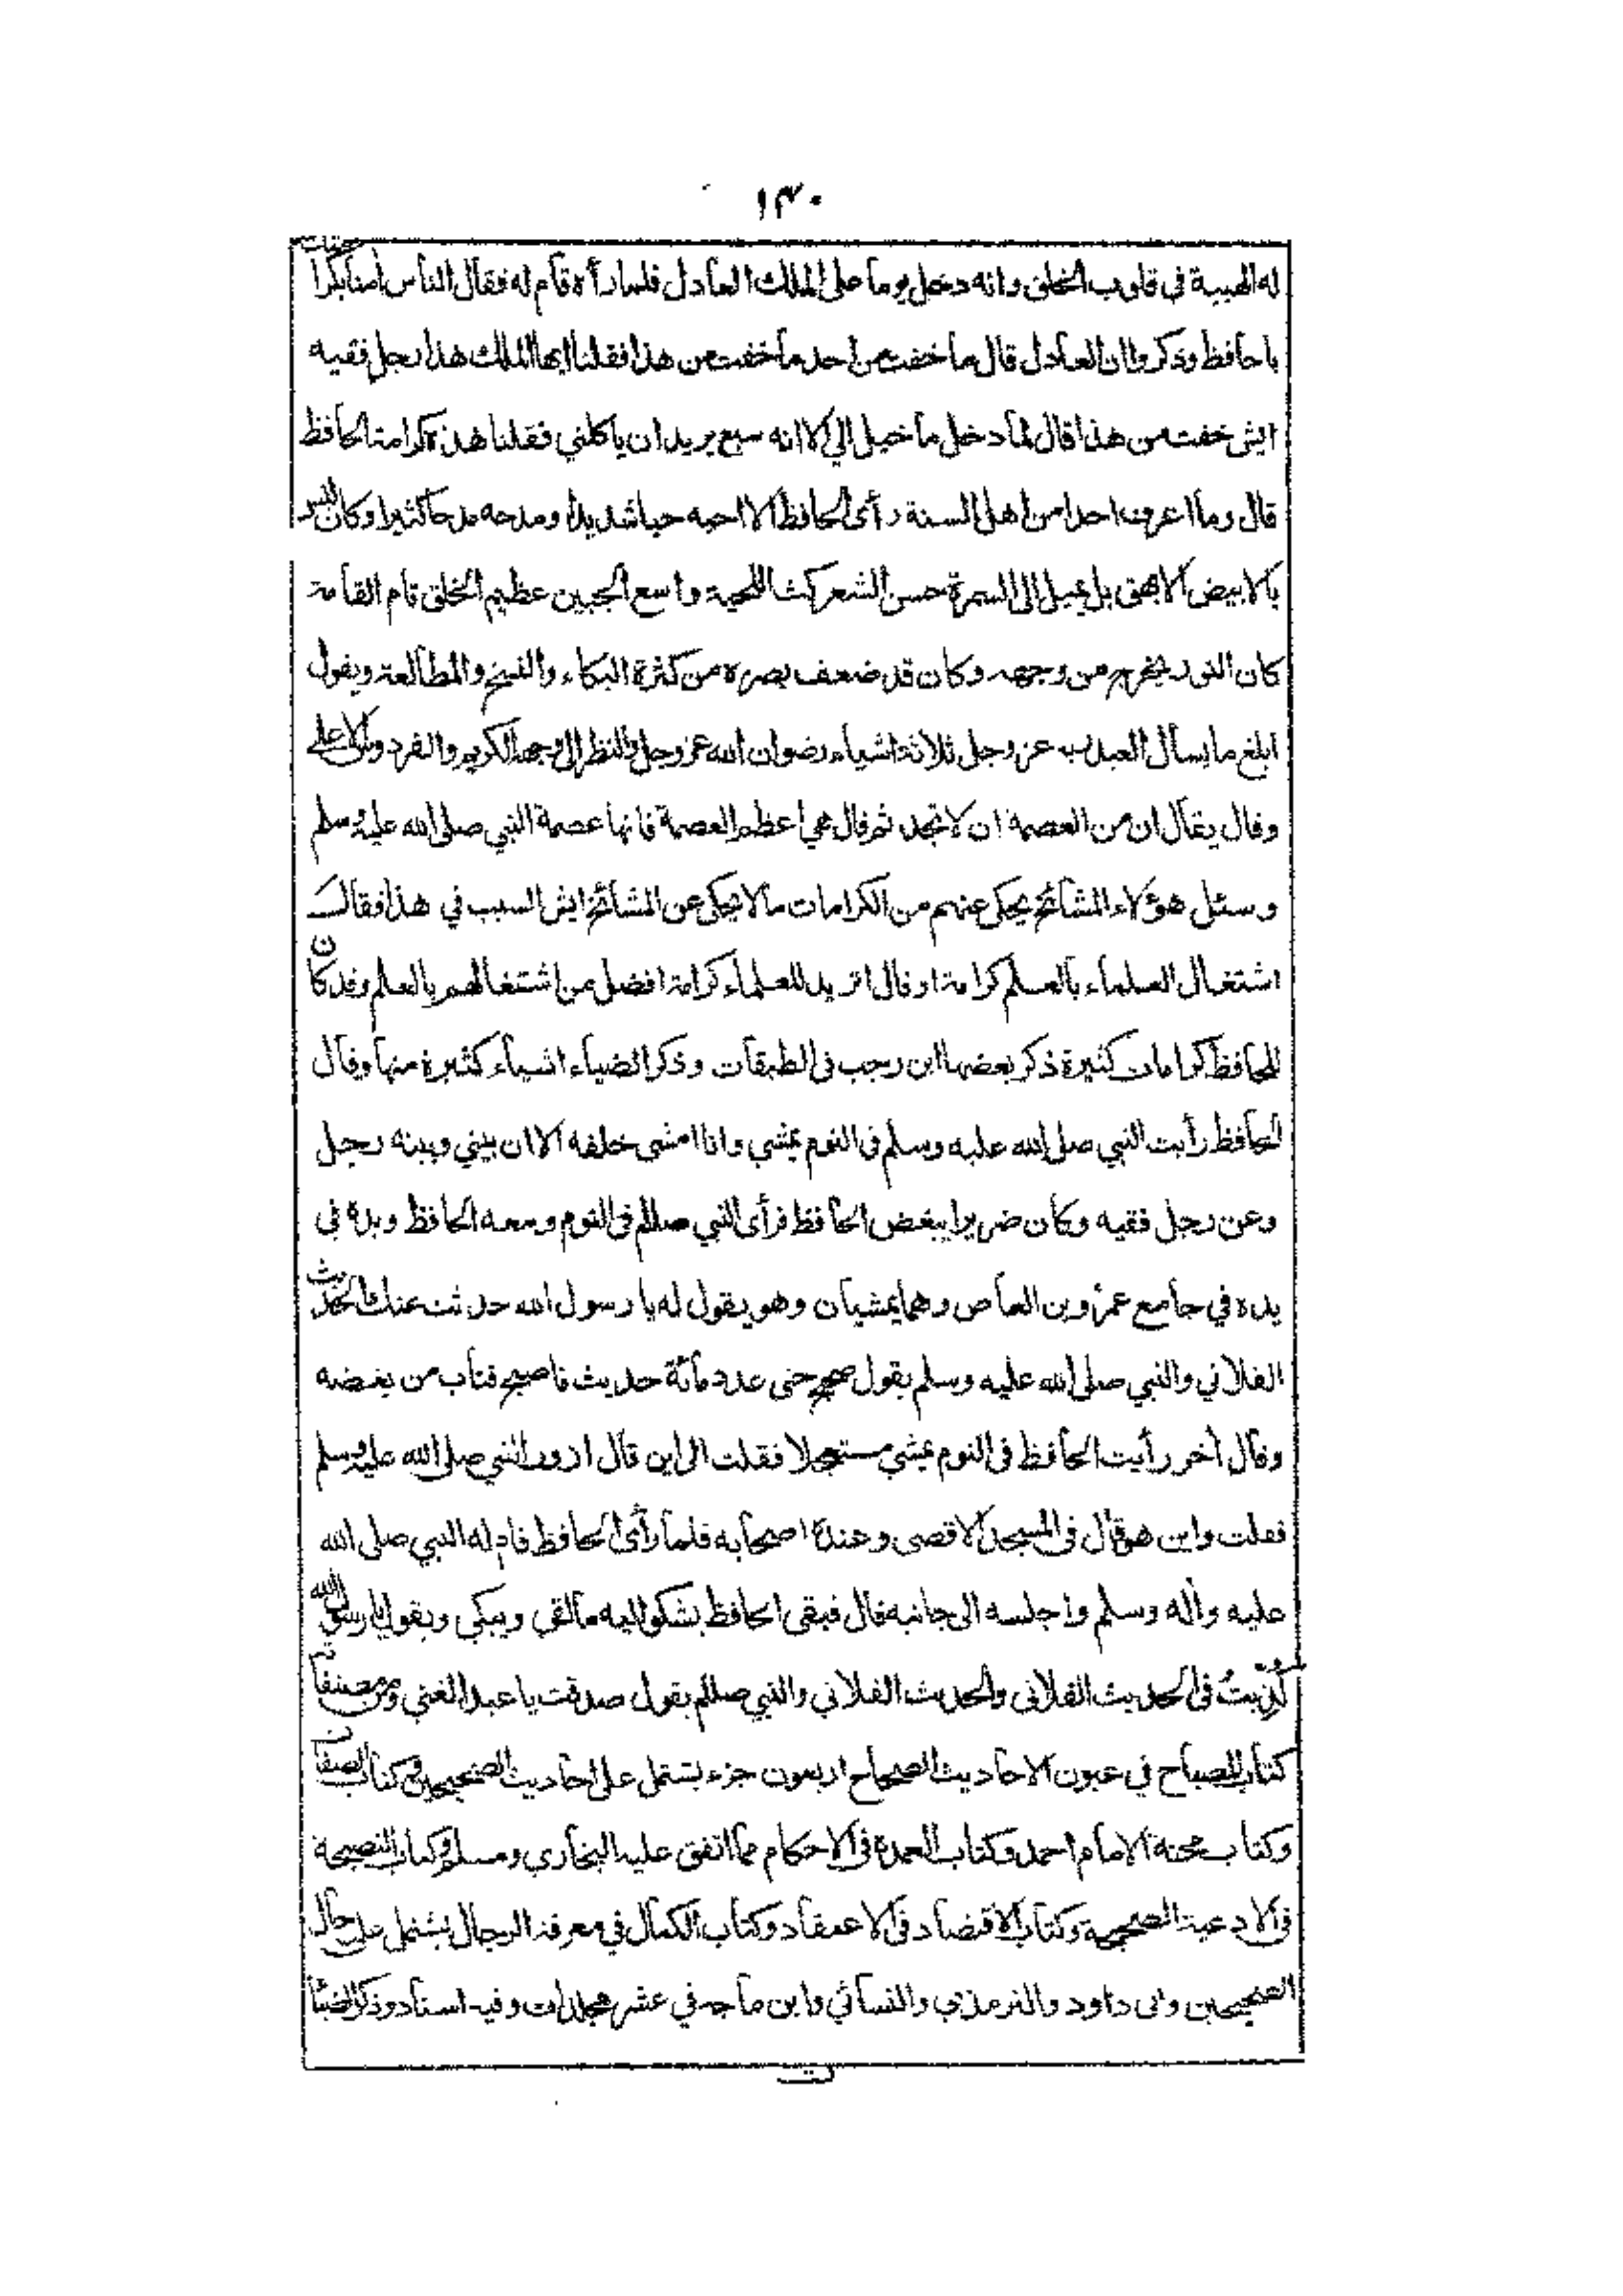 ١٣٠
له الهيبة في قلوب الخلق وانه دخل يوما على الملك العادل فلما رأه قام له فقال الناس أمنا بكراماتك
يا حافظ وذكروا ان العادل قال ما خفت من احد ما خفت من هذا فقلنا ايها الملك هذا رجل فقيه
ايش خفت من هذا قال لما دخل ما خيل الي الا انه سبع يريد ان ياكلني فقلنا هذه كرامة الحافظ
قال وما اعرف احدا من اهل السنة رأى الحافظ الا احبه حبا شديدا ومدحه مدحا كثيرا وكان ليس
بالابيض الامهق بل يميل الى السمرة حسن الشعر كث اللحية واسع الجبين عظيم الخلق تام القامة
كان النور يخرج من وجهه وكان قد ضعف بصره من كثرة البكاء والنسخ والمطالعة ويقول
ابلغ ما يسأل العبد ب عز وجل ثلاثة اشياء رضوان الله عز وجل والنظر الى وجهه الكريم والفردوس الاعلى
وقال يقال ان من العصمة ان لا تجد ثم قال هي اعظم العصمة فانها عصمة النبي صلى الله عليه وسلم
وسئل هؤلاء المشائخ يحكى عنهم من الكرامات ما لا يحكى عن المشائخ ايش السبب في هذا فقال
اشتغال العلماء بالعلم كرامة او قال اتريد للعلماء كرامة افضل من اشتغالهم بالعلم وقد كان
للحافظ كرامات كثيرة ذكر بعضها ابن رجب في الطبقات وذكر الضياء اشياء كثيرة منها وقال
الحافظ رأيت النبي صلى الله عليه وسلم في النوم يمشي وانا امشي خلفه الا ان بيني وبينه رجل
وعن رجل فقيه وكان ضريرا يبغض الحافظ فرأى النبي صللم في النوم ومعه الحافظ ويده في
يده في جامع عمرو بن العاص وهما يمشيان وهو يقول له يا رسول الله حدثت عنك بالحديث
الفلاني والنبي صلى الله عليه وسلم يقول صحيح حتى عدد مائة حديث فاصبح فتاب من بغضه
وقال أخر رأيت الحافظ في النوم يمشي مستعجلا فقلت الى اين قال ازور النبي صلى الله عليه وسلم
فقلت واين هو قال في المسجد الاقصى وعنده اصحابه فلما رأى الحافظ قام له النبي صلى الله
عليه وأله وسلم واجلسه الى جانبه قال فبقى الحافظ يشكو اليه ما لقي ويبكي ويقول يا رسول الله
كُذِّبتُ في الحديث الفلاني والحديث الفلاني والنبي صللم يقول صدقت يا عبد الغني ومن مصنفاته
كتاب المصباح في عيون الاحاديث الصحاح اربعون جزء يشتمل على احاديث الصحيحين وكتاب الصفات
وكتاب محنة الامام احمد وكتاب العمدة في الاحكام مما اتفق عليه البخاري ومسلم وكتاب النصيحة
في الادعية الصحيحة وكتاب الاقتصاد في الاعتقاد وكتاب الكمال في معرفة الرجال يشتمل على رجال
الصحيحين وابى داود والترمذي والنسائي وابن ماجه في عشر مجلدات وفيه اسناد وذكر الضياء